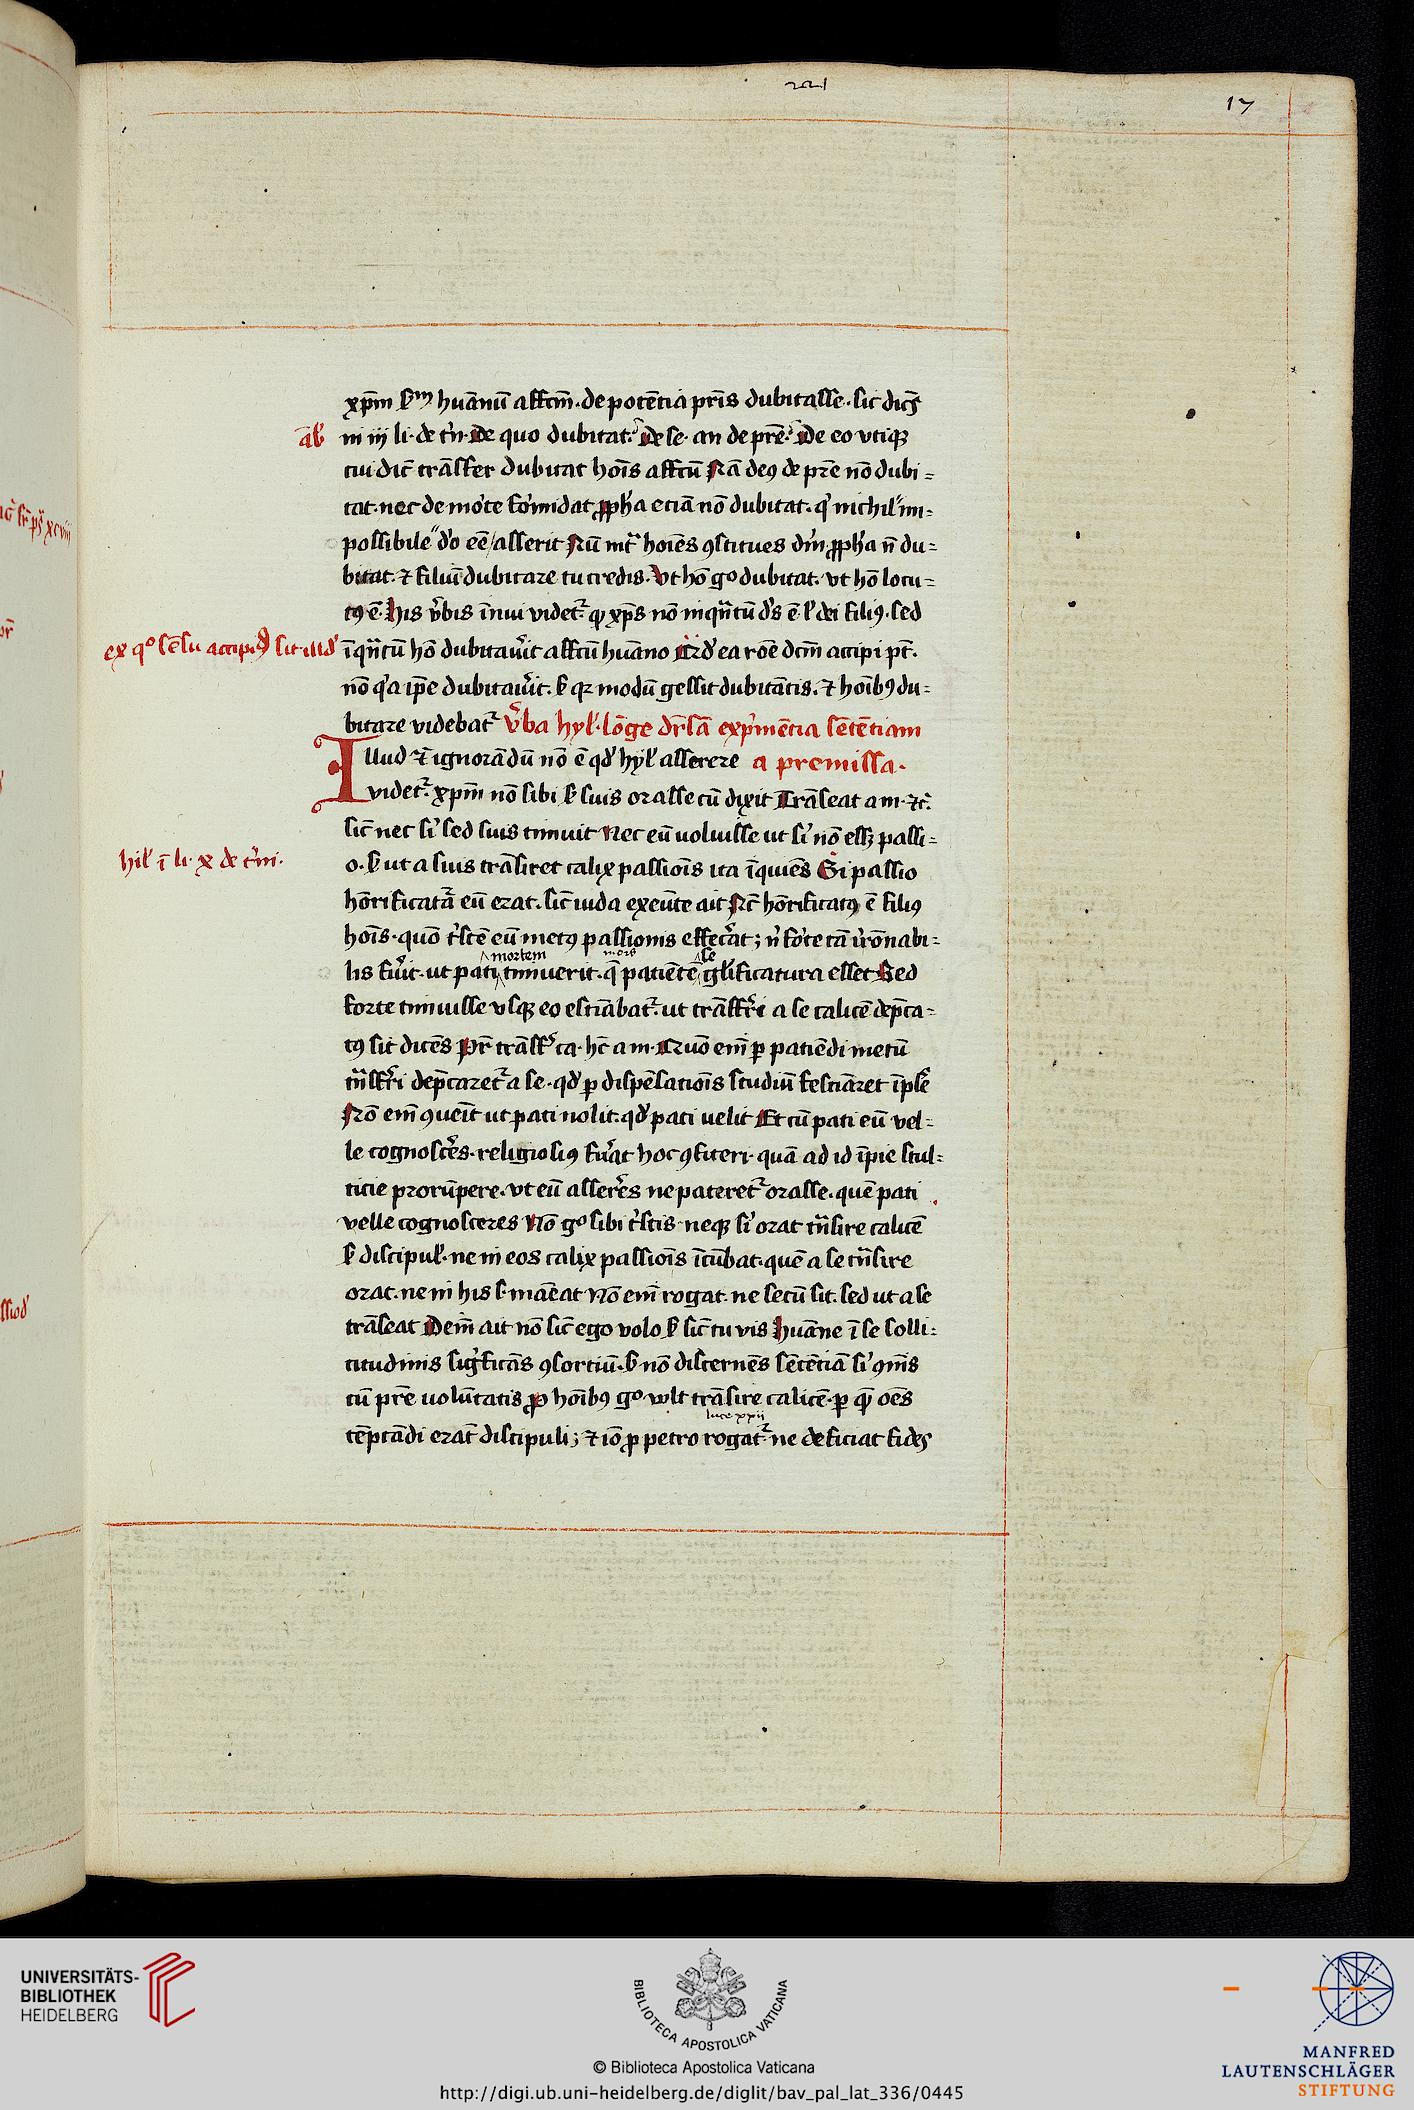 221
17
xp̄m ẜm huānū affcm̄. de potētia pr̄is dubitasse. sic dicēs
āb
in iij li. de t'n. De quo dubitat. De se. an de pr̄e. De eo vtiqꝫ
cui dic̄ trāsfer dubitat hoīs affcū Nā deꝰ de pr̄e nō dubi=
tat. nec de morte formidat ꝓph'a eciā nō dubitat. q' nichil im=
possibile d'o ēe asserit Nū int' hoīes ꝯstitues dm̄. ꝓph'a n̄ du=
bitat. ⁊ filiū dubitare tu credis. Vt hō gº dubitat. vt hō locu=
tꝰ ē. His v̄bis innui videt' ꝙ xp̄s nō inqn̄tū d's ē ł dei filiꝰ. sed
ex qº sēsu accipiꝰ sit illd'
īqn̄tū hō dubitau'it affcū huāno Qd' ea rōe dcm̄ accipi pt̄.
nō q'a ip̄e dubitau'it. ẜ qꝫ modū gessit dubitātis. ⁊ hoībꝰ du=
bitare videbat' V'ba hyl'. lōge dr̄sā exp'mētia sētētiam
Illud ⁊ ignorādū nō ē qd' hyl' asserere a premissa.
videt'. xp̄m nō sibi ẜ suis orasse cū dixit Trāseat a m. ⁊c̄.
sic̄ nec si' sed suis timuit Nec eū uoluisse ut si' nō essꝫ passi=
hil' ī li. x de t'ni.
o. ẜ ut a suis trāsiret calix passiōis ita īquiēs Si passio
hōrificatā eū erat. sic̄ iuda exeūte ait Nc̄ hōrificatꝰ ē filiꝰ
hoīs. quō t'stē eū metꝰ passionis effecāt; n̄ forte tā irrōnabi=
mortem mors se
lis fu'it. ut pati timuerit. q̄ patiētē gl'ificatura esset Sed
forte timuisse vsqꝫ eo estīabat'. ut trāsferri a se calicē dep̄ca=
tꝰ sit dicēs Pr̄ trāsf' ca. hc̄ a m. Quō em̄ ꝑ patiēdi metū
tn̄sferri dep̄caret' a se. qd' ꝑ dispēsatiōis studiū festīaret īplē
Nō em̄ ꝯuenit ut pati nolit. qd' pati uelit Et cū pati eū vel=
le cognoscēs. religiosiꝰ fu'at hoc ꝯfiteri. quā ad id īpie stul=
ticie prorūpere. vt eū asserēs ne pateret' orasse. quē pati
velle cognosceres Nō gº sibi t'stis neqꝫ si' orat tn̄sire calicē
ẜ discipul'. ne in eos calix passiōis īcūbat. quē a se tn̄sire
orat. ne in his ẜ maneat Nō em̄ rogat. ne secū sit. sed ut a se
trāseat Dem̄ ait nō sic̄ ego volo ẜ sic̄ tu vis Huāne ī se solli=
titudinis significās ꝯsortiū. ẜ nō discernēs sētētiā si' ꝯm̄s
cū pr̄e uolūtatis Ꝓ hoībꝰ gº vult trāsire calicē. ꝑ q̄ oēs
luce xxii
tēptādi erāt discipuli; ⁊ iō ꝓ petro rogat' ne deficiat fides
UNIVERSITÄTS-
BIBLIOTHEK
HEIDELBERG
BIBLIOTECA APOSTOLICA VATICANA
© Biblioteca Apostolica Vaticana
http://digi.ub.uni-heidelberg.de/diglit/bav_pal_lat_336/0445
MANFRED
LAUTENSCHLÄGER
STIFTUNG